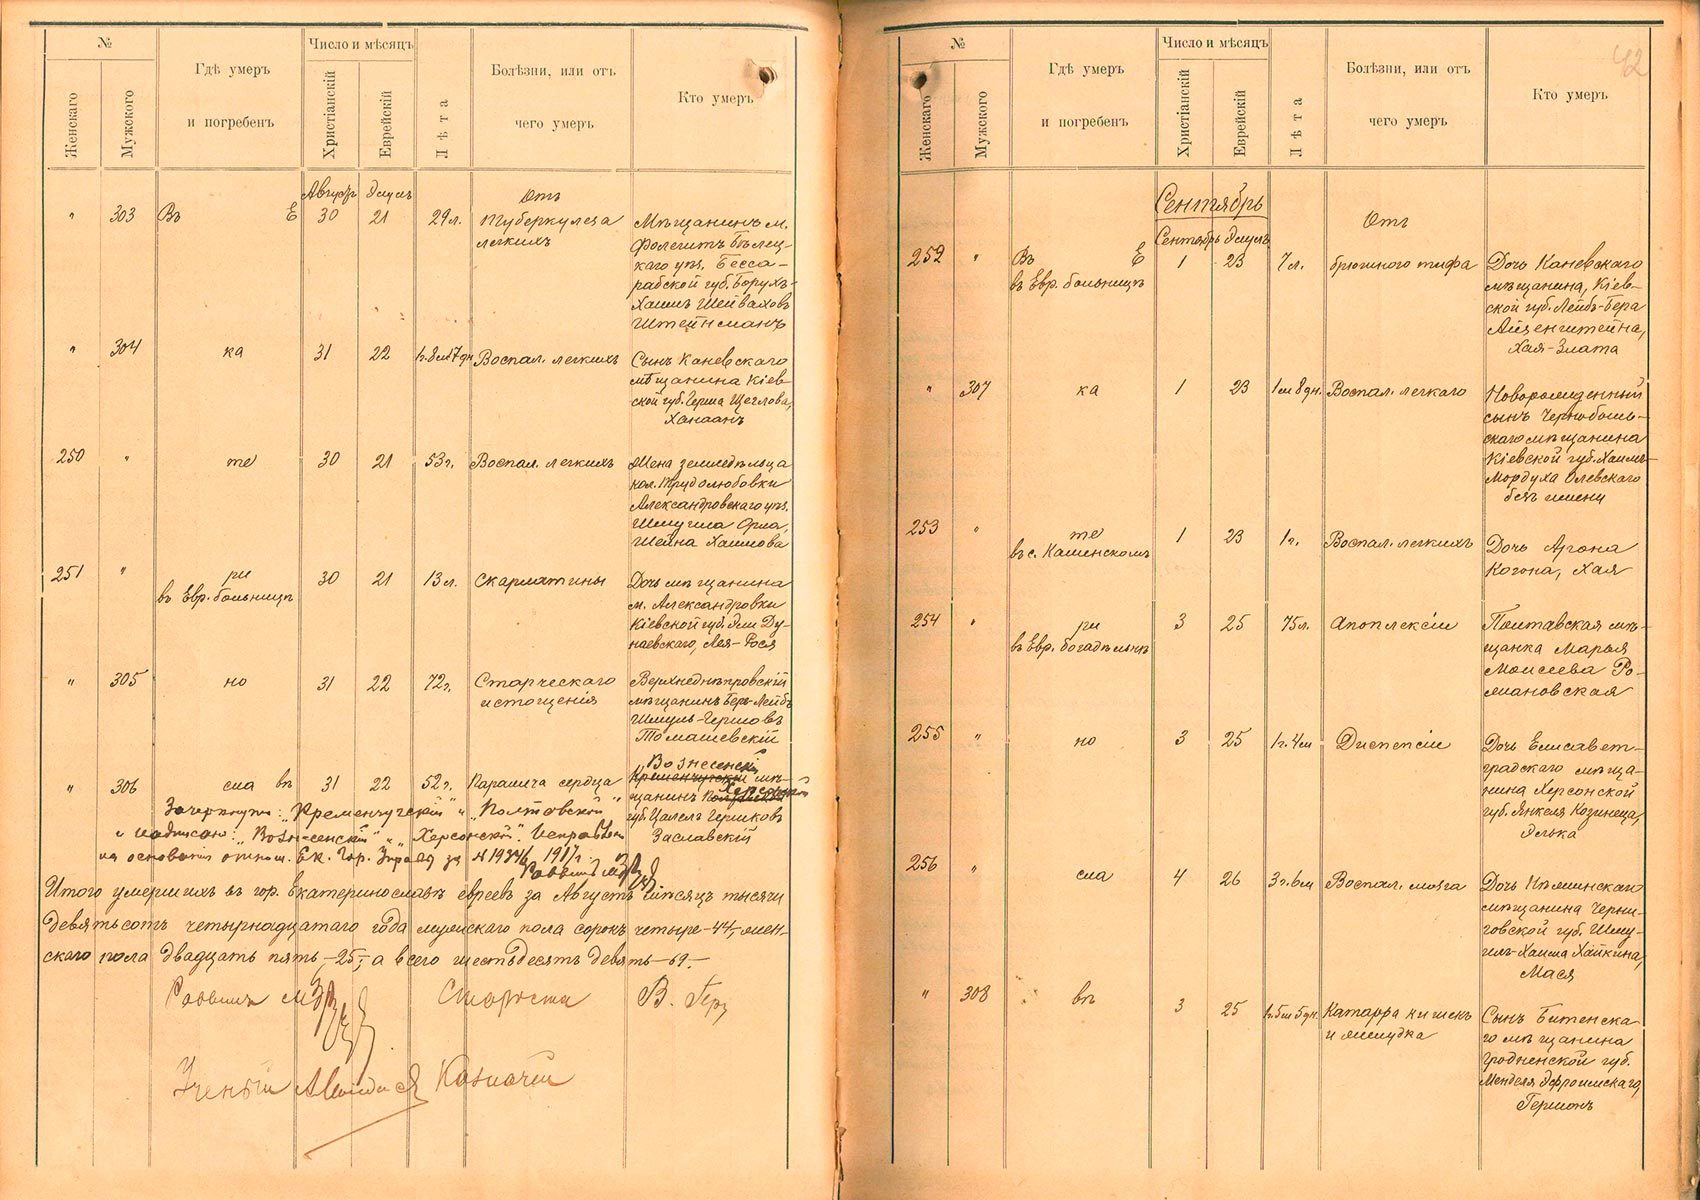 №
Число и мѣсяцъ
Гдѣ умеръ
и погребенъ
Болѣзни, или отъ
чего умеръ
Кто умеръ
Женскаго
Мужского
Христіанскій
Еврейскій
Лѣта
Августъ Элулъ
Отъ
" 303 Въ Е 30 21 29 л. туберкулеза
легкихъ
Мѣщанинъ м.
Фолештъ Бѣлец-
каго уѣз. Бесса-
рабской губ. Борухъ-
Хаимъ Шейваховъ
Штейнсманъ
" 304 ка 31 22 1 г. 8 м. 17 дн. Воспал. легкихъ
Сынъ Каневскаго
мѣщанина Кіев-
ской губ. Герша Щеглова,
Ханаанъ
250 " те 30 21 53 г. Воспал. легкихъ
Жена земледѣльца
кол. Трудолюбовки
Александровскаго уѣз.
Шмуила
Шейна Хаимова
251 " ри 30 21 13 л. Скарлатины
въ Евр. больницѣ
Дочь мѣщанина
м. Александровки
Кіевской губ. Эли Ду-
наевскаго, Лея-Рося
" 305 но 31 22 72 г. Старческаго
истощенія
Верхнеднѣпровскій
мѣщанинъ Беръ-Лейбъ
Шмуль-Гершовъ
Томашевскій
Вознесенскій
" 306 сла вѣ 31 22 52 г. Паралича сердца
Кременчугскій мѣ-
Херсонской
щанинъ Полтавской
губ. Цалелъ Гершковъ
Заславскій
Зачеркнуто: „Кременчугскій" и „Полтавской"
и надписано: „Вознесенскій" и „Херсонской". Исправлено
на основаніи отнош. Ек. Гор. Управы за № 1917 г.
Раввинъ
Итого умершихъ въ гор. Екатеринославѣ евреевъ за Августъ мѣсяцъ тысяча
девятьсотъ четырнадцатаго года мужскаго пола сорокъ четыре-44,-жен-
скаго пола двадцать пять,-25,-а всего шестьдесятъ девять-69.-
Раввинъ Староста В.
Ученый Казначей
42
№
Число и мѣсяцъ
Гдѣ умеръ
и погребенъ
Болѣзни, или отъ
чего умеръ
Кто умеръ
Женскаго
Мужского
Христіанскій
Еврейскій
Лѣта
Сентябрь
Отъ
Сентябрь Элулъ
252 " Въ Е 1 23 7 л. брюшного тифа
въ Евр. больницѣ
Дочь Каневскаго
мѣщанина, Кіев-
ской губ. Лейбъ-Бера
Айзенштейна,
Хая-Злата
" 307 ка 1 23 1 м. 8 дн. Воспал. легкаго
Новорожденный
сынъ Чернобыль-
скаго мѣщанина
Кіевской губ. Хаимъ-
Мордуха Олевскаго
безъ имени
253 " те 1 23 1 г. Воспал. легкихъ
въ с. Каменскомъ
Дочь Арона
Когона, Хая
254 " ри 3 25 75 л. Апоплексіи
въ Евр. богадѣльнѣ
Полтавская мѣ-
щанка Марья
Моисеева Ро-
мановская
255 " но 3 25 1 г. 4 м. Диспепсіи
Дочь Елисавет-
градскаго мѣща-
нина Херсонской
губ. Янкеля Козинеца,
Элька
256 " сла 4 26 3 г. 6 м. Воспал. мозга
Дочь Нѣжинскаго
мѣщанина Черни-
говской губ. Шму-
илъ-Хаима Хайкина,
Мася
" 308 вѣ 3 25 1 г. 5 м. 5 дн. Катарра кишекъ
и желудка
Сынъ Битенска-
го мѣщанина
Гродненской губ.
Менделя Эфроимскаго,
Гершонъ